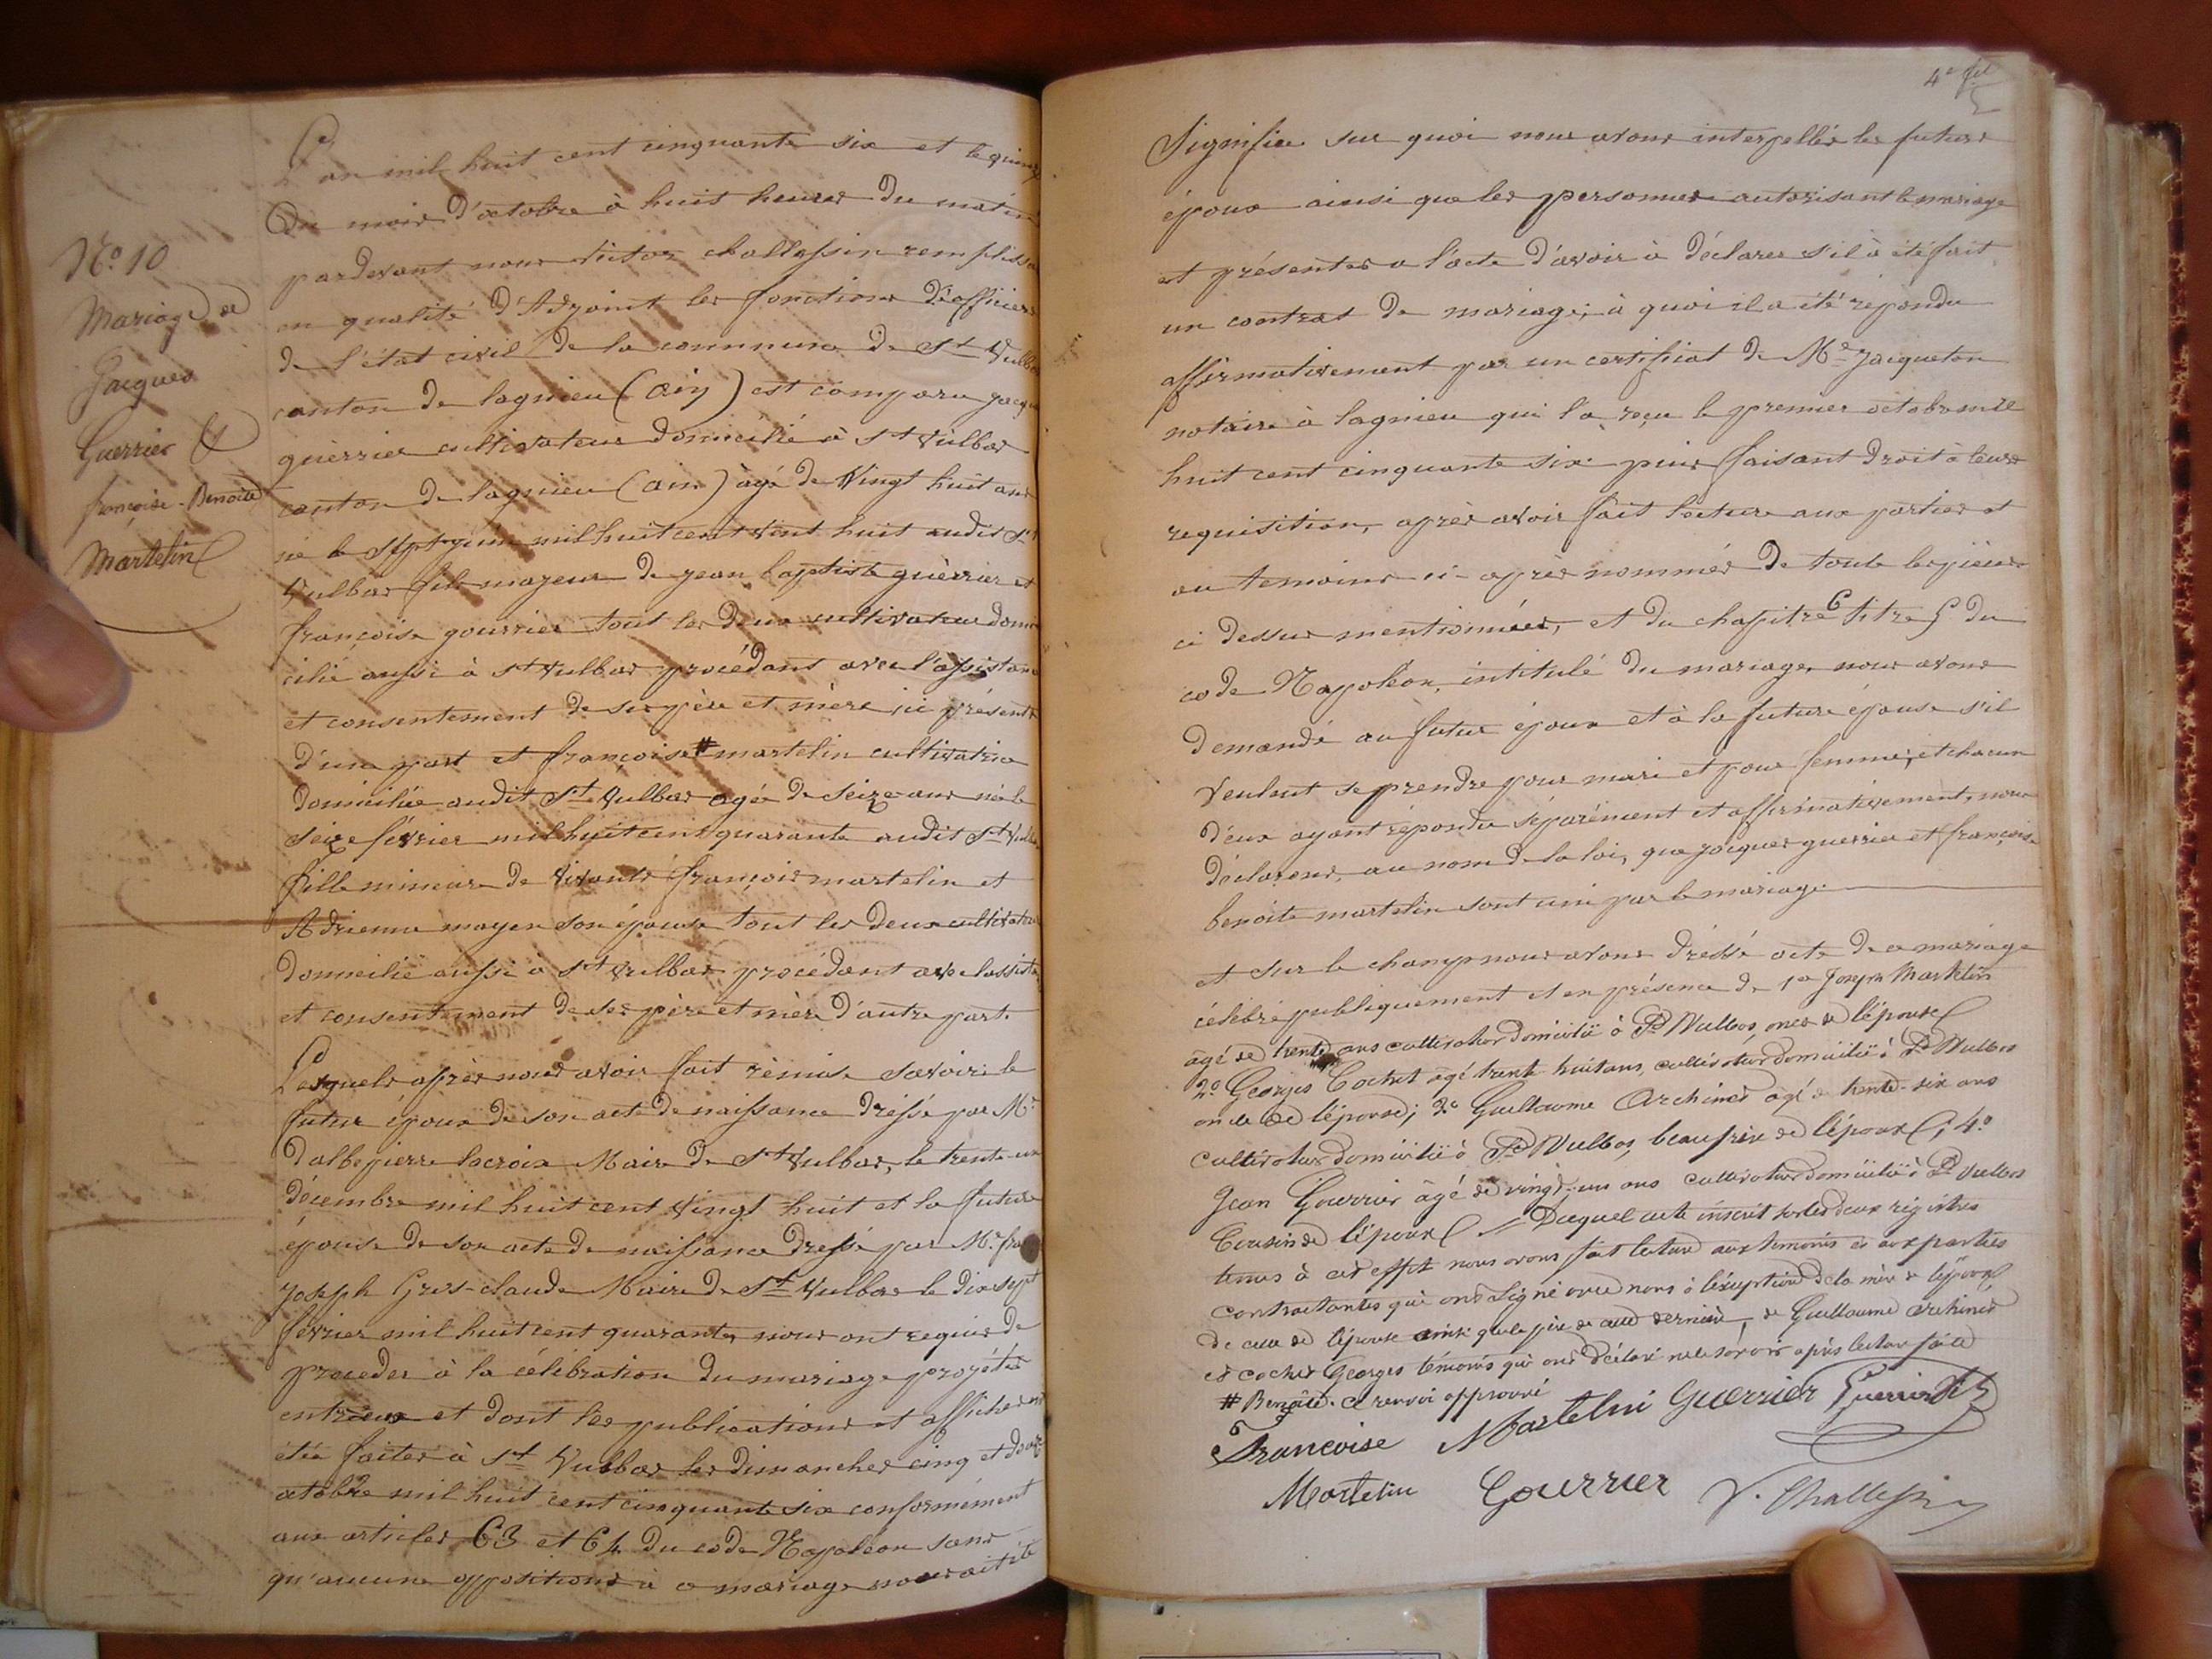 No 10
Mariage de
Jacques
Guerrier &
françoise-Benoite
Martelin
L'an mil huit cent cinquante six et le quinze
Du mois d'octobre à huit heures du matin
pardevant nous victor challessin remplissa
en qualité d'Adjoint les fonctions D'officiers
de l'état civil de la commune de St Vulba
canton de lagnieu (ain) est comparu jacqu
guèrrier cultivateur domicilié à st vulbas
canton de lagnieu (ain) âgé de Vingt huit ans
né le juin mil huit cent vint huit audit St
Vulbas fils majeur de jean baptiste guèrrier et
françoise gourrier tout les deux cultivateur domi
cilié aussi à st vulbas procédant avec l'assistanc
et consentement de ses père et mère ici présents
d'une part et françoise # martelin cultivatrice
domiciliée audit St Vulbas agée de seize ans née le
seize février mil huit cent quarante audit St Vulba
fille mineure de vivants françois martelin et
Adrienne moyen son épouse tout les deux cultivateu
domicilié aussi à st vulbas procédant avec lassista
et consentement de ses père et mère d'autre part.
Lesquels après nous avoir fait rémise savoir: le
futur époux de son acte de naissance dréssé par Mr
dalbepierre lacroix Maire de St Vulbas, le trente-un
décembre mil huit cent vingt huit et la future
épouse de son acte de naissance dressé par Mr fra
joseph Gros-claude Maire de St Vulbas le dix sept
février mil huit cent quarante, nous ont requis de
proceder à la célébration du mariage projétée
entreux et dont les publications et affiches ont
étée faites à St Vulbas les dimanches cinq et douze
octobre mil huit cent cinquante six conformément
aux articles 63 et 64 du code Napoléon sans
qu'aucune oppositions à ce mariage nous ait été
4e
Signifiée sur quoi nous avons interpellés les futurs
époux ainsi que les personnes autorisant le mariage
et présentes a l'acte d'avoir à déclarer s'il à été fait
un contrat de mariage; à quoi il a été répondu
affirmativement par un certificat de Me Jacqueton
notaire à lagnieu qui l'a reçu le premier octobre mil
huit cent cinquante six puis faisant droit à leurs
requisition, après avoir fait lecture aux parties et
au temoins ci-après nommés de toute les pièces
ci dessus mentionnées, et du chapitre 6 titre 5 du
code Napoléon, intitulé du mariage, nous avons
demandé au futur époux et à la future épouse s'il
veulent se prendre pour mari et pour femme; et chacun
d'eux ayant répondu séparément et affirmativement, nous
déclarons, au nom de la loi, que jacques guerrier et françoise
benoite martelin sont uni par le mariage
et sur le champ nous avons dréssé acte de ce mariage
célébré publiquement et en présence de 1o Joseph Martelin
âgé de trente ans cultivateur domicilié à St Vulbas, oncle de l'épouse
2o Georges Cochet âgé trente huit ans, cultivateur domicilié à St Vulbas
oncle de l'épouse; 3o Guillaume Archimed âgé de trente-six ans
cultivateur domicilié à St Vulbas, beau frère de l'époux; 4o
Jean Gourrier âgé de vingt-un ans cultivateur domicilié à St Vulbas
Cousin de l'époux // Duquel acte inscrit sur les deux régistres
tenus à cet effet nous avons fait lecture aux témoins et aux parties
contractantes qui ont signé avec nous à l'exception de la mère de l'époux
de celle de l'épouse ainsi que le père de cette dernière, de Guillaume Archimed
et cochet Georges témoins qui ont déclaré ne le savoir après lecture faite
# Benoite. ce renvoi approuvé
Françoise Martelin Guerrier Guerrier fils
Martelin Gourrier V. Challessin